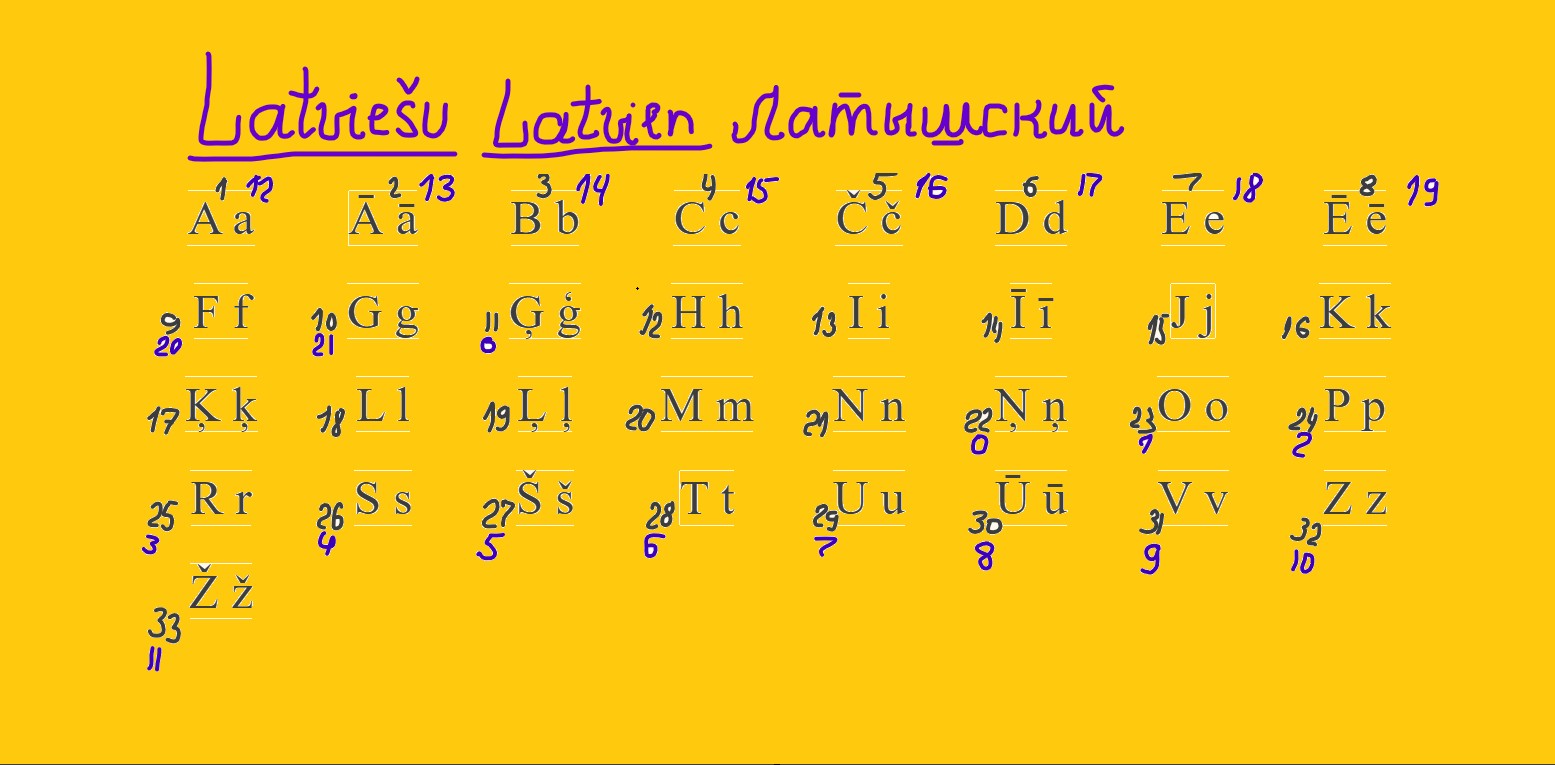 Latviešu Latvien Латышский
1 12 2 13 3 14 4 15 5 16 6 17 7 18 8 19
A a Ā ā B b C c Č č D d E e Ē ē
9 F f 10 G g 11 Ģ ģ 12 H h 13 I i 14 Ī ī 15 J j 16 K k
20 21 0
17 Ķ ķ 18 L l 19 Ļ ļ 20 M m 21 N n 22 Ņ ņ 23 O o 24 P p
0 1 2
25 R r 26 S s 27 Š š 28 T t 29 U u 30 Ū ū 31 V v 32 Z z
3 4 5 6 7 8 9 10
33 Ž ž
11